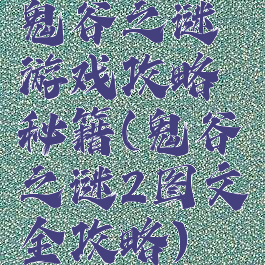 鬼谷之谜
游戏攻略
秘籍(鬼谷
之谜2图文
全攻略)